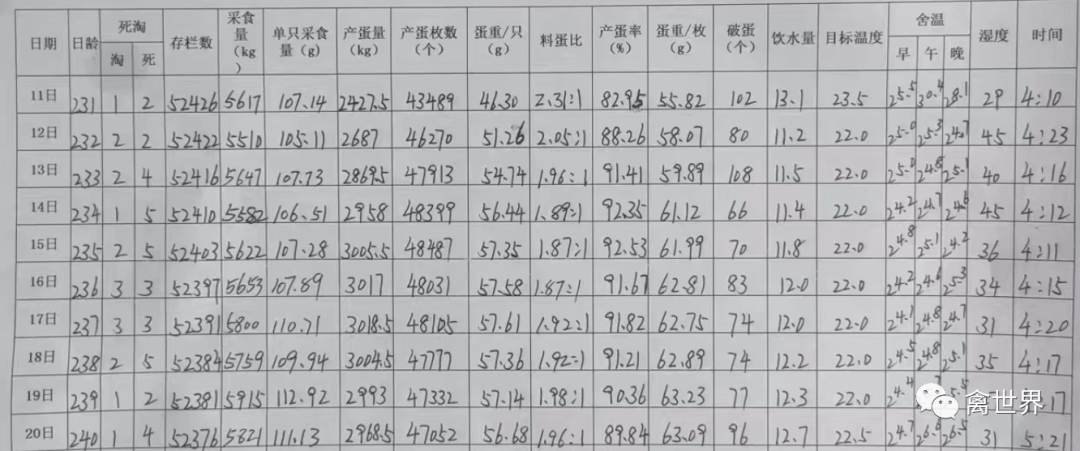 日期 日龄 死淘 淘 死 存栏数 采食量(kg) 单只采食量(g) 产蛋量(kg) 产蛋枚数(个) 蛋重/只(g) 料蛋比 产蛋率(%) 蛋重/枚(g) 破蛋(个) 饮水量 目标温度 舍温 早 午 晚 湿度 时间
11日 231 1 2 52426 5617 107.14 2427.5 43489 46.30 2.31:1 82.95 55.82 102 13.1 23.5 25.5 30.4 28.1 29 4:10
12日 232 2 2 52422 5510 105.11 2687 46270 51.26 2.05:1 88.26 58.07 80 11.2 22.0 25.0 25.3 24.7 45 4:23
13日 233 2 4 52416 5647 107.73 2869.5 47913 54.74 1.96:1 91.41 59.89 108 11.5 22.0 25.0 24.8 25.1 40 4:16
14日 234 1 5 52410 5582 106.51 2958 48399 56.44 1.89:1 92.35 61.12 66 11.4 22.0 24.2 24.7 24.6 45 4:12
15日 235 2 5 52403 5622 107.28 3005.5 48487 57.35 1.87:1 92.53 61.99 70 11.8 22.0 24.8 25.1 24.2 36 4:11
16日 236 3 3 52397 5653 107.89 3017 48031 57.58 1.87:1 91.67 62.81 83 12.0 22.0 24.2 24.6 25.3 34 4:15
17日 237 3 3 52391 5800 110.71 3018.5 48105 57.61 1.92:1 91.82 62.75 74 12.0 22.0 24.1 24.8 24.7 31 4:20
18日 238 2 5 52384 5759 109.94 3004.5 47777 57.36 1.92:1 91.21 62.89 74 12.2 22.0 24.5 24.8 25.1 35 4:17
19日 239 1 2 52381 5915 112.92 2993 47332 57.14 1.98:1 90.36 63.23 77 12.3 22.0 24.4 17
20日 240 1 4 52376 5821 111.13 2968.5 47052 56.68 1.96:1 89.84 63.09 96 12.7 22.5 24.7 26.6 26.5 31 5:21
禽世界